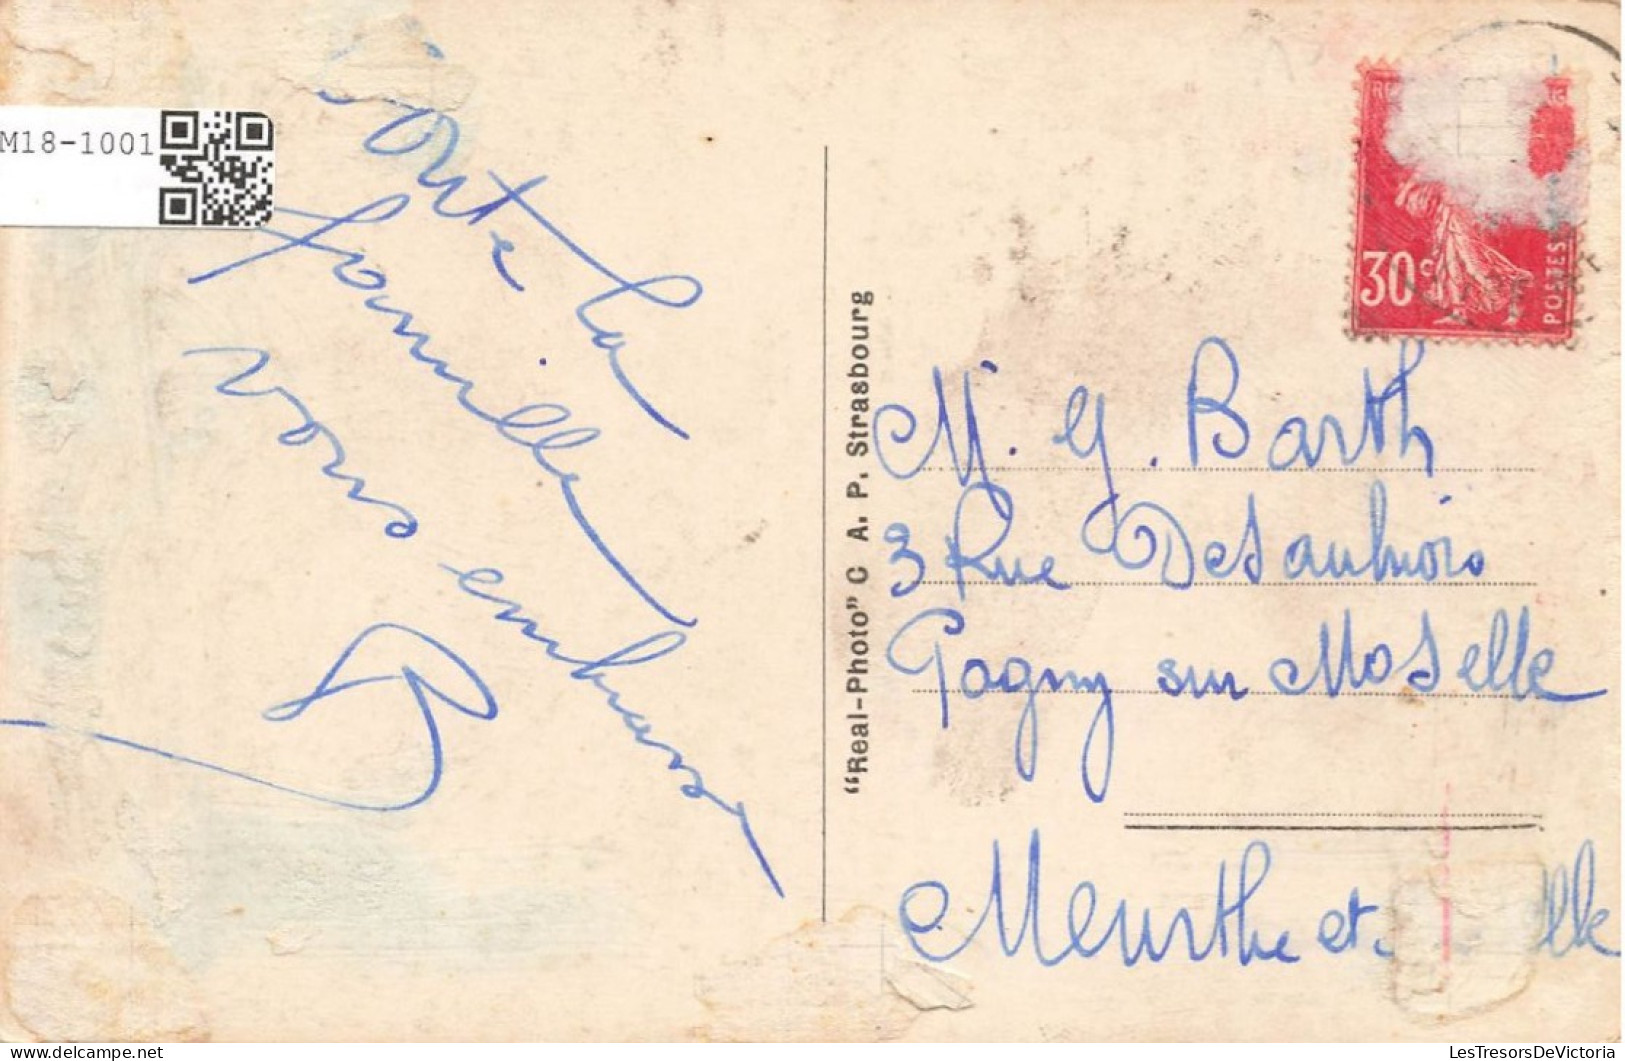 M18-1001
oute la
famille
vous embrasse
"Real-Photo" C A. P. Strasbourg
30c
POSTES
M. G. Barth
3 Rue De Saulnois
Pagny sur Moselle
Meurthe et. lle
LesTresorsDeVictoria